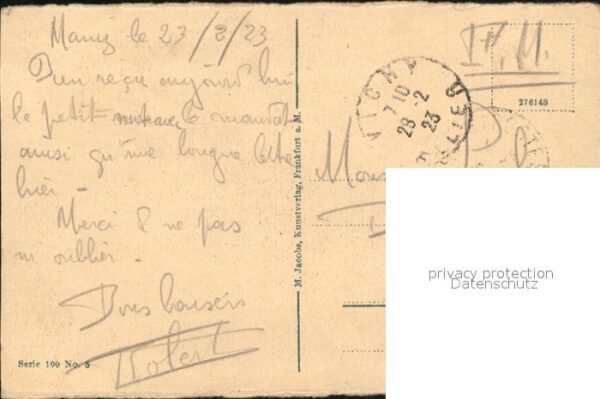 le 23/2/23
Bien reçu aujourd'hui
le petit mandat
ainsi qu'une longue lettre
hier -
Merci de ne pas
m'oublier -
Bons baisers
Serie 100 No. 5
M. Jacobs, Kunstverlag, Frankfurt a. M.
F.M.
276143
VICHY
7 10
28 -2
23
privacy protection
Datenschutz